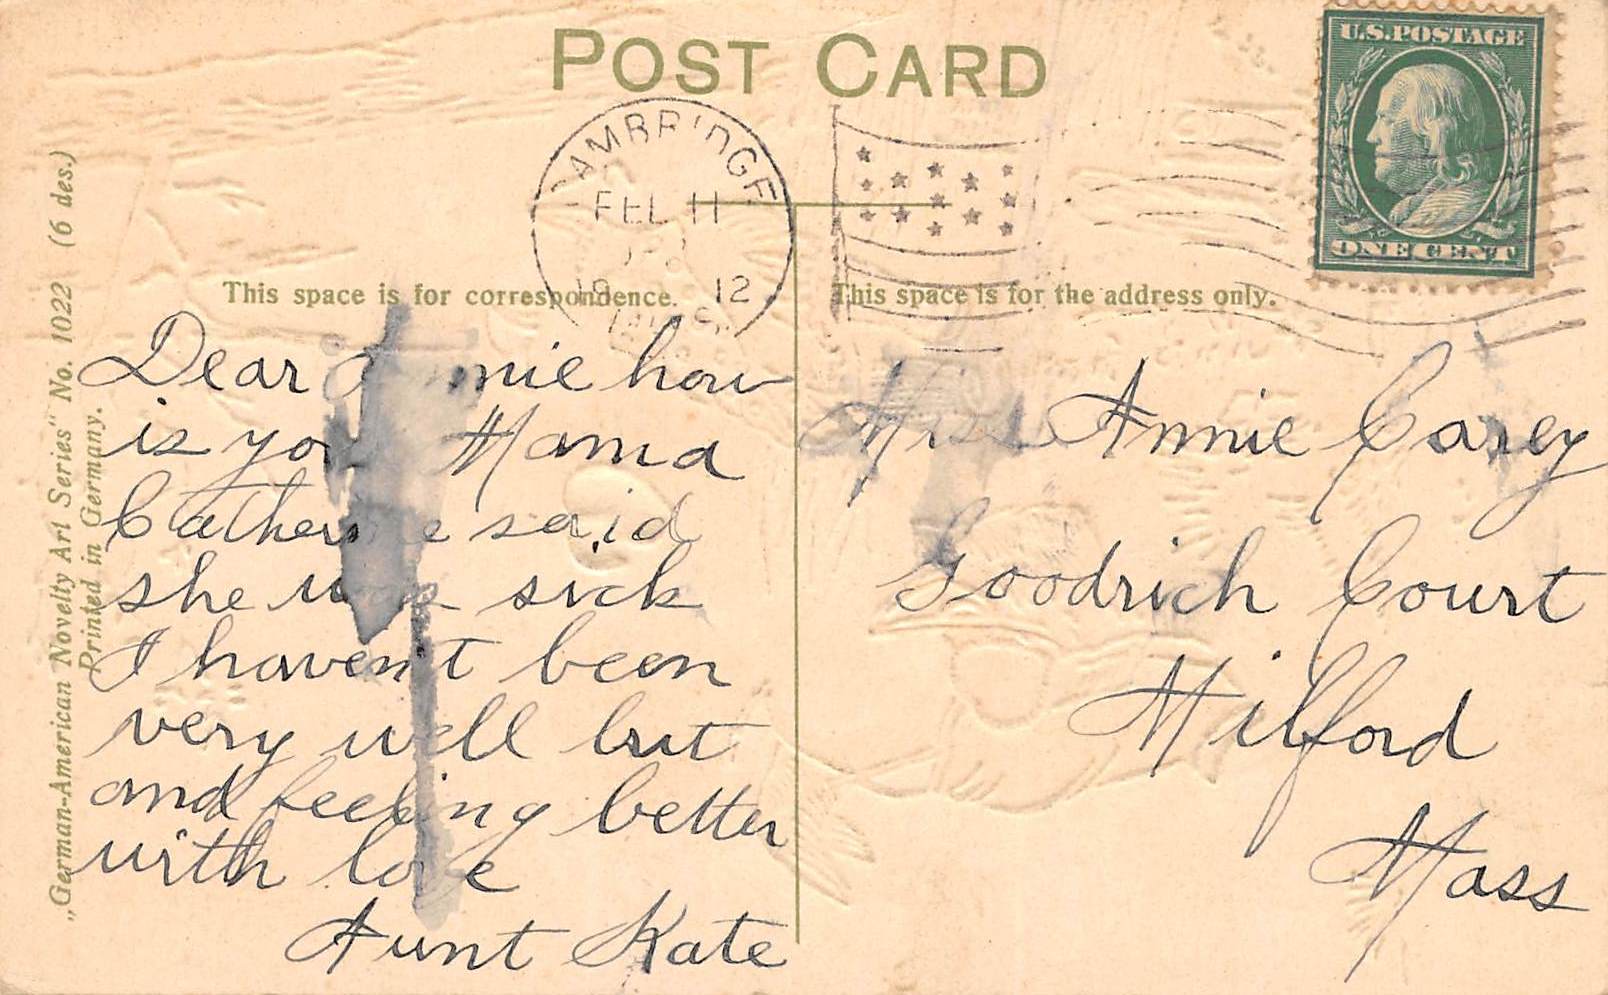 POST CARD
U.S. POSTAGE
ONE CENT
CAMBRIDGE
FEB 11
19 12
MASS.
This space is for correspondence.
This space is for the address only.
Dear Annie how
is your Mama
Catherine said
she was sick
I haven't been
very well but
and feeling better
with love
Aunt Kate
Miss Annie Carey
Goodrich Court
Milford
Mass
„German-American Novelty Art Series" No. 1022 (6 des.)
Printed in Germany.